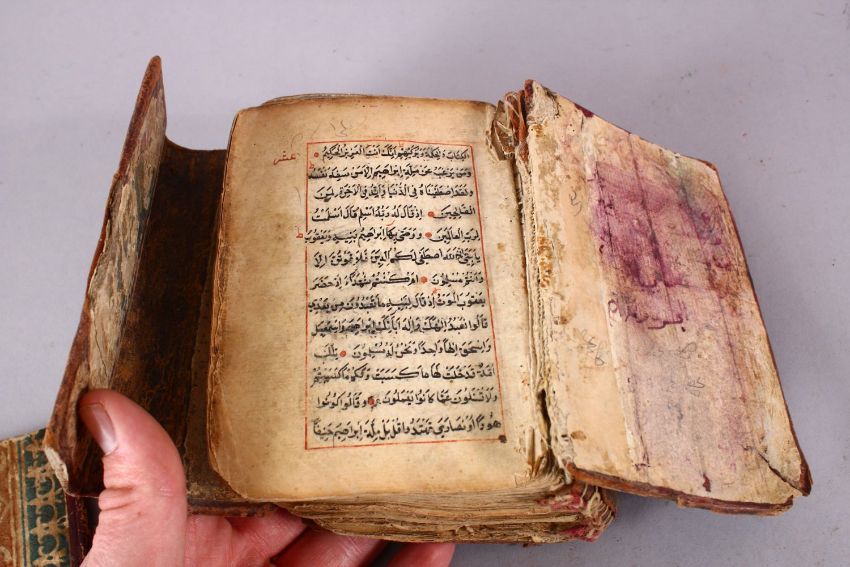 عشر
الكتاب والحكمة ويزكيهم انك انت العزيز الحكيم
ومن يرغب عن ملة ابراهيم الا من سفه نفسه
ولقد اصطفيناه في الدنيا وانه في الاخرة لمن
الصالحين اذ قال له ربه اسلم قال اسلمت
لرب العالمين ووصى بها ابراهيم بنيه ويعقوب
يا بني ان الله اصطفى لكم الدين فلا تموتن الا
وانتم مسلمون ام كنتم شهداء اذ حضر
يعقوب الموت اذ قال لبنيه ما تعبدون من بعدي
قالوا نعبد الهك واله ابائك ابراهيم واسمعيل
واسحق الها واحدا ونحن له مسلمون تلك
امة قد خلت لها ما كسبت ولكم ما كسبتم
ولا تسئلون عما كانوا يعملون وقالوا كونوا
هودا او نصارى تهتدوا قل بل ملة ابراهيم حنيفا